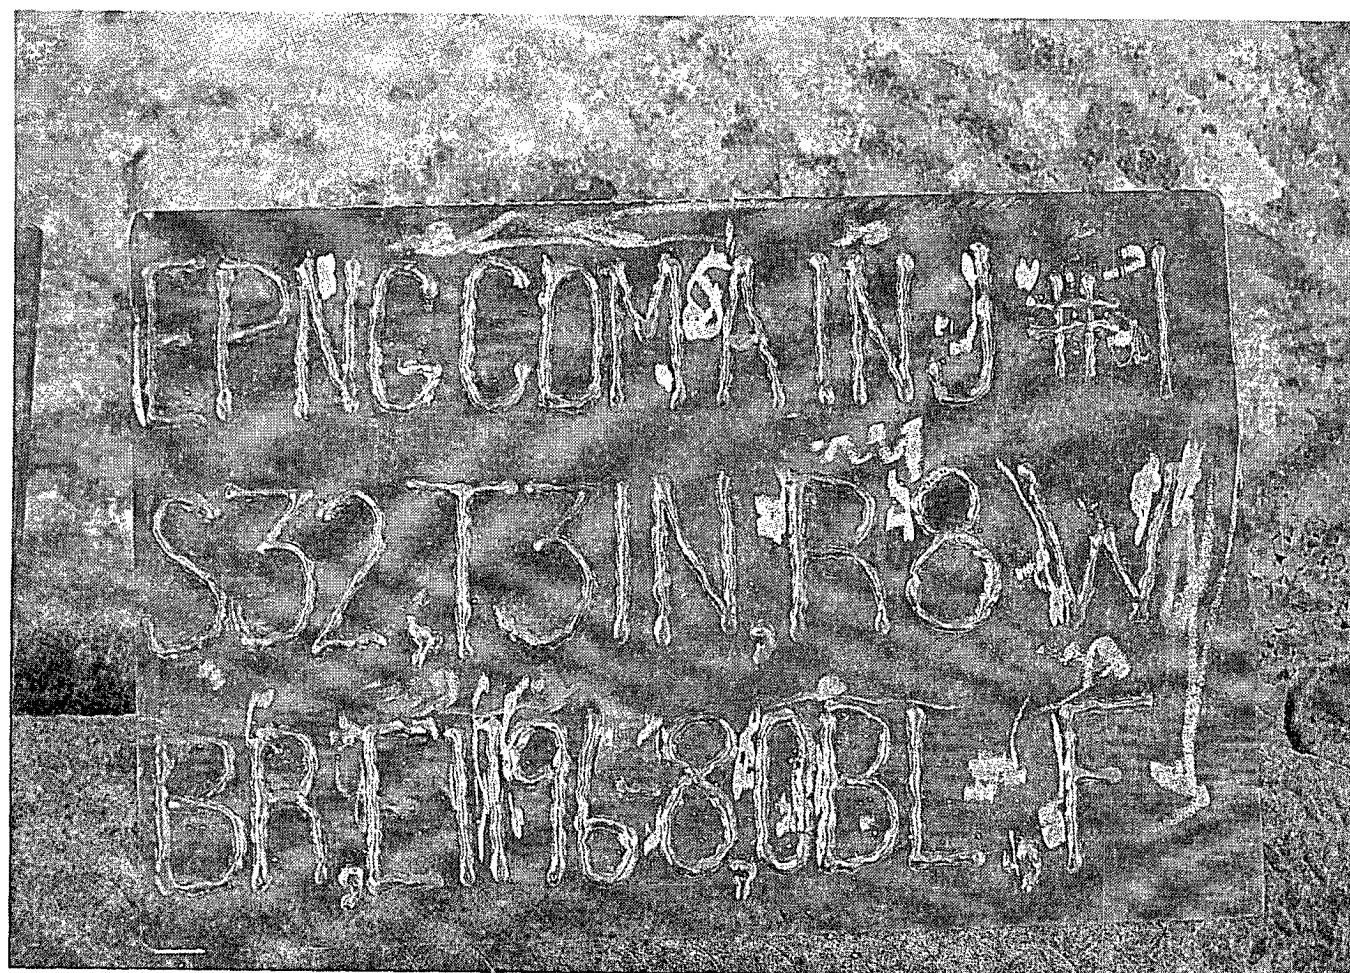 EPNG COM. A INJ #1
S32, T31N, R8W
BR, E 1196-8, 0BL, F